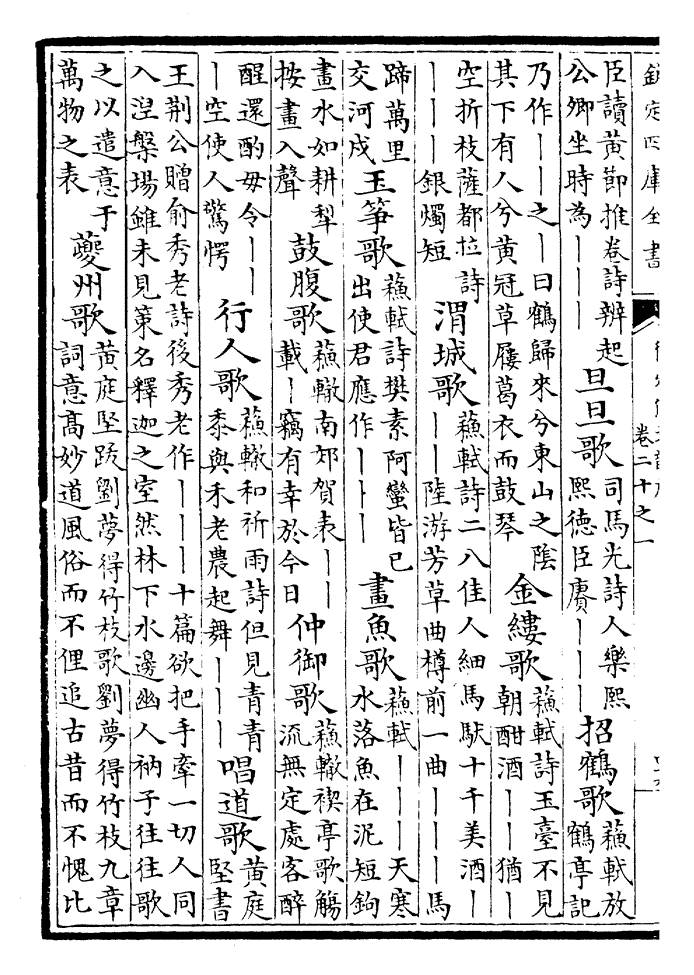 欽定四庫全書
卷二十之一
臣讀黃節推卷詩辨起
公卿坐時為丨丨丨
旦旦歌
司馬光詩人樂熙
熙德臣賡丨丨丨
招鶴歌
蘇軾放
鶴亭記
乃作丨丨之丨曰鶴歸來兮東山之陰
其下有人兮黃冠草屨葛衣而鼓琴
金縷歌
蘇軾詩玉臺不見
朝酣酒丨丨猶丨
空折枝薩都拉詩
丨丨丨銀燭短
渭城歌
蘇軾詩二八佳人細馬馱十千美酒丨
丨丨陸游芳草曲樽前一曲丨丨丨馬
蹄萬里
交河戍
玉筝歌
蘇軾詩樊素阿蠻皆已
出使君應作丨丨丨
畫魚歌
蘇軾丨丨丨天寒
水落魚在泥短鉤
畫水如耕犁
按畫入聲
鼓腹歌
蘇轍南郊賀表丨丨
載丨竊有幸於今日
仲御歌
蘇轍禊亭歌觴
流無定處客醉
醒還酌毋令丨丨
丨空使人驚愕
行人歌
蘇轍和祈雨詩但見青青
黍與禾老農起舞丨丨丨
唱道歌
黃庭
堅書
王荆公贈俞秀老詩後秀老作丨丨丨十篇欲把手牽一切人同
入涅槃場雖未見策名釋迦之室然林下水邊幽人衲子往往歌
之以遣意于
萬物之表
夔州歌
黃庭堅跋劉夢得竹枝歌劉夢得竹枝九章
詞意高妙道風俗而不俚追古昔而不愧比